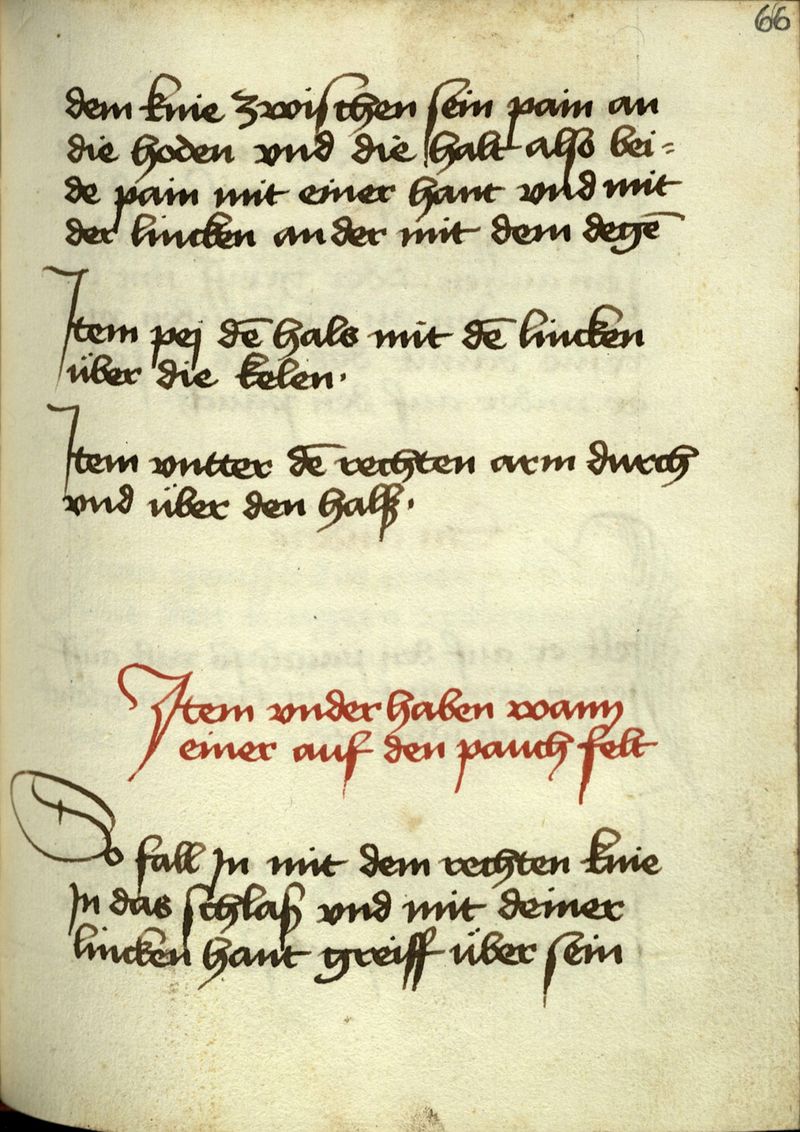 66
dem knie zwischen sein pain an
die hoden vnd die halt also bei=
de pain mit einer hant vnd mit
der lincken ander mit dem degē
Item pej dē hals mit dē lincken
über die kelen ·
Item vntter dē rechten arm durch
vnd über den halß ·
Item vnder haben wann
einer auf den pauch felt
So fall In mit dem rechten knie
In das schlaß vnd mit deiner
lincken hant greiff über sein